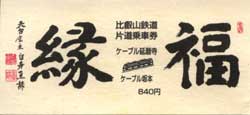 福
比叡山鉄道
片道乗車券
ケーブル延暦寺
ケーブル坂本
840円
縁